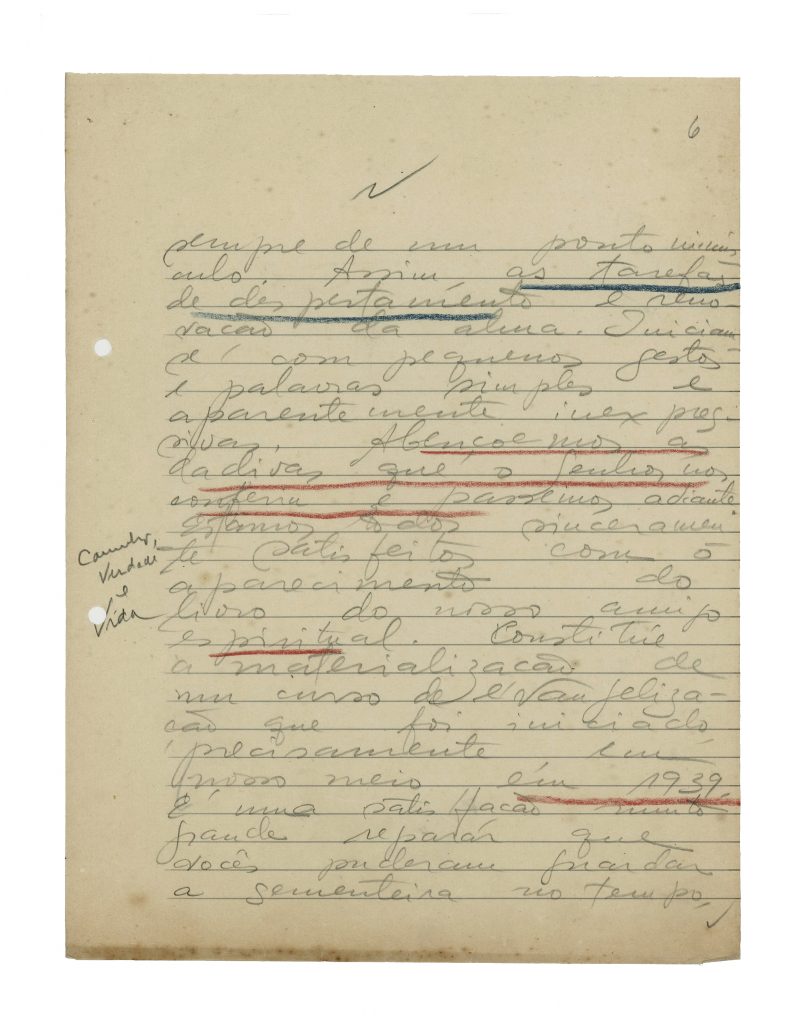 6
sempre de um ponto minús
culo. Assim as tarefas
de despertamento e reno-
vação da alma. Iniciam
se com pequenos gestos
e palavras simples e
aparentemente inexpres-
sivas. Abençoemos as
dadivas que o Senhor nos
conferiu e passemos adiante
Estamos todos sinceramen
te satisfeitos com o
aparecimento do
livro do nosso amigo
espiritual. Constitúe
a materialização de
um curso de evangeliza-
ção que foi iniciado
precisamente em
nosso meio em 1939.
É uma satisfação muito
grande reparar que
vocês puderam guardar
a sementeira no tempo,
Caminho,
Verdade
e
Vida